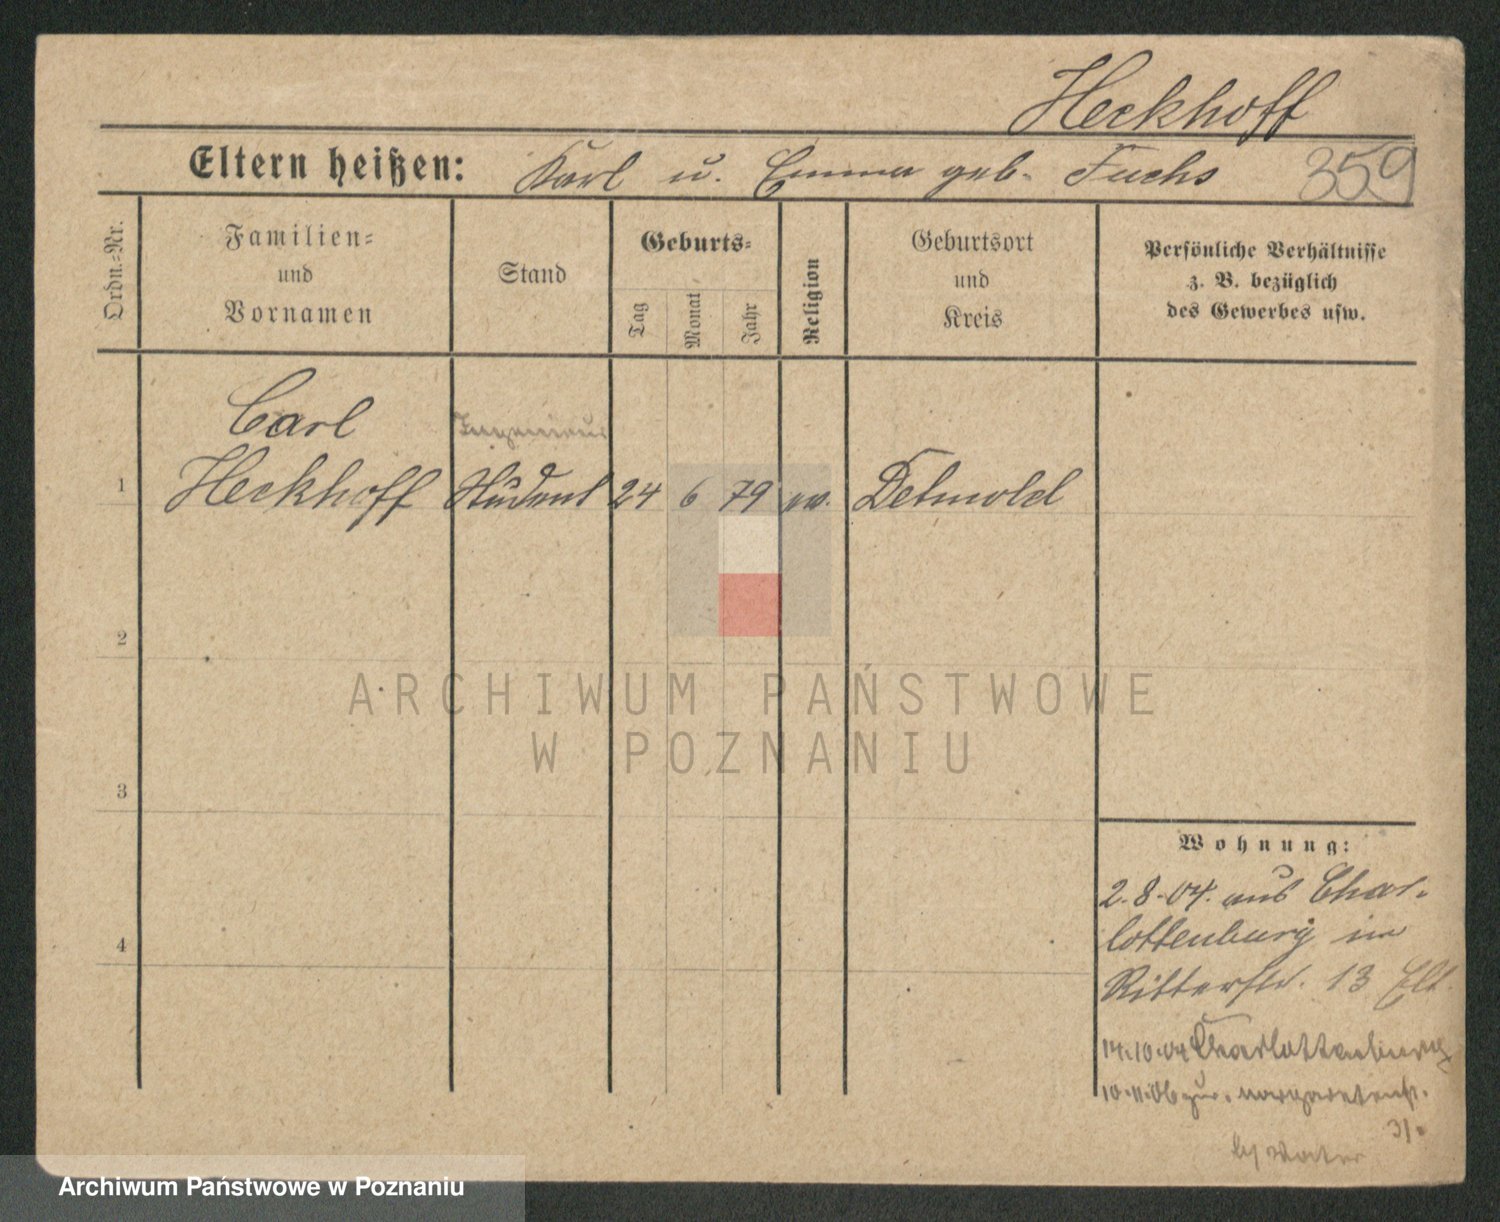 Heckhoff
Eltern heißen: Karl u. Emma geb. Fuchs
359
Ordn.=Nr.
Familien=
und
Vornamen
Stand
Geburts=
Tag
Monat
Jahr
Religion
Geburtsort
und
Kreis
Persönliche Verhältnisse
z. B. bezüglich
des Gewerbes usw.
Carl
Ingenieur
1 Heckhoff Student 24 6 79 ev. Detmold
2
ARCHIWUM PAŃSTWOWE
W POZNANIU
3
Wohnung:
2.8.04. aus Char-
lottenburg in
Ritterstr. 13 Elt.
4
14.10.04 Charlottenburg
10.11.06 zur. Margaretenst.
31.
b/ Vater
Archiwum Państwowe w Poznaniu